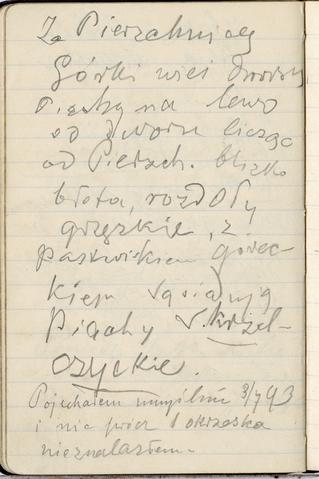 Za Pierzchnicą
Górki wieś dworska
Piaski na lewo
od dworu licząc
od Pierzch. blizko
błota, rozdoły
grzęzkie, z
pastwiskiem górec-
kiem sąsiadują
Piachy
czyckie.
Pojechałem umyślnie 3/7 93
i nic prócz 1 okrzeska
nieznalazłem.